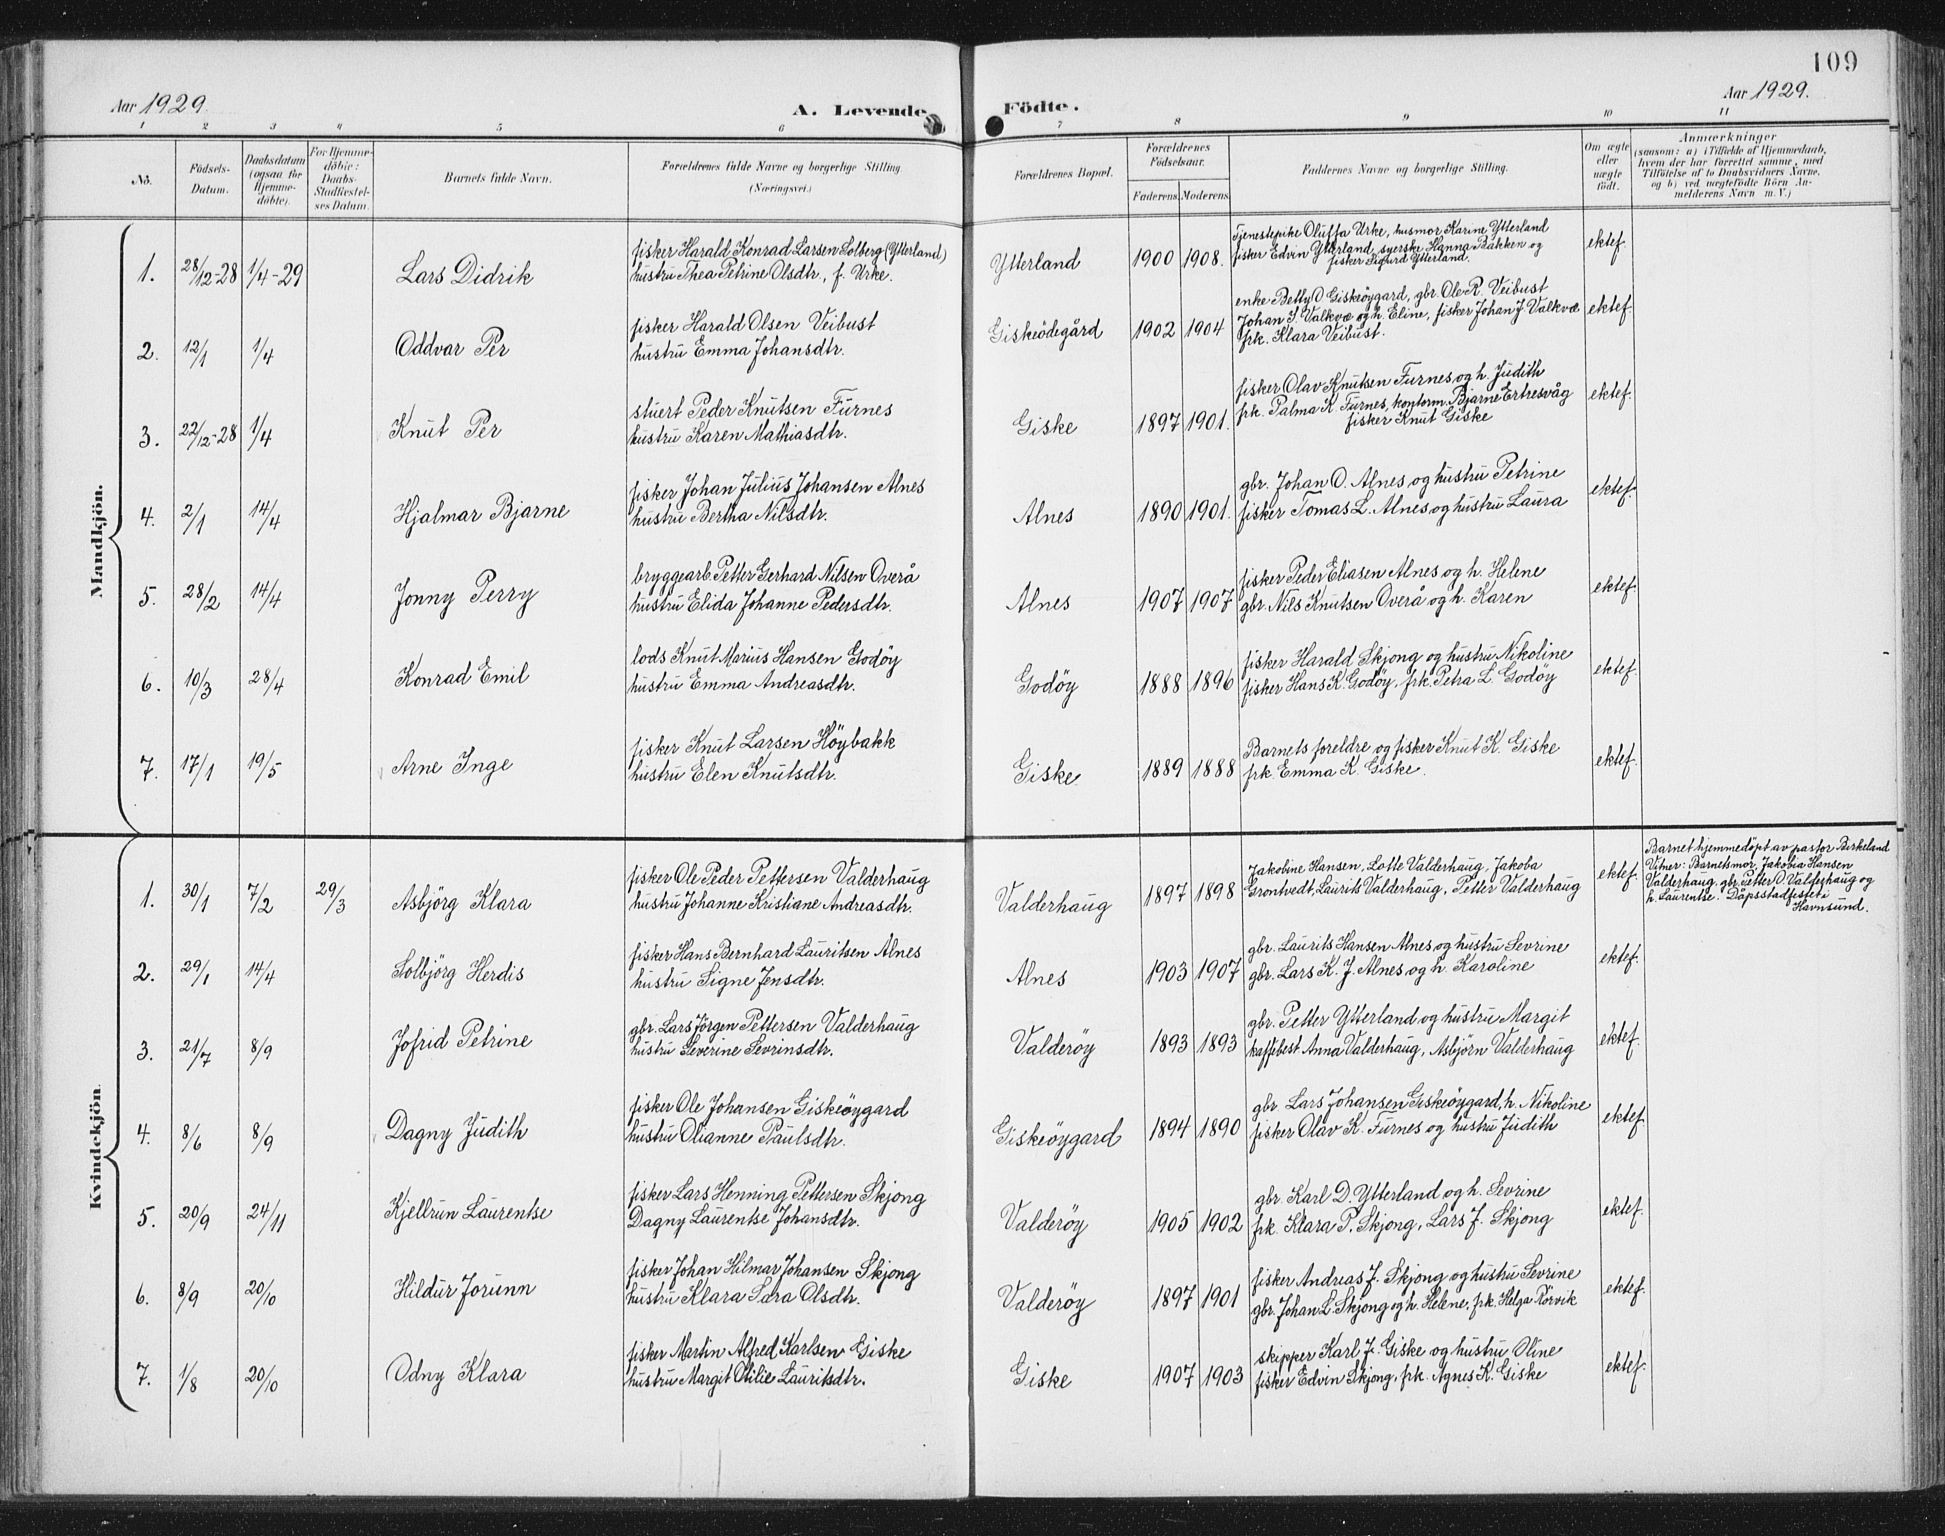 109
Aar 1929. A. Levende Födte. Aar 1929.
1 2 3 4 5 6 7 8 9 10 11
No. Födsels-Datum. Daabsdatum (ogsaa for Hjemme-döbte). For Hjemme-döbte: Daabs-Stadfæstel-ses Datum. Barnets fulde Navn. Forældrenes fulde Navne og borgerlige Stilling (Næringsvei.) Forældrenes Bopæl. Forældrenes Födselsaar. Faderens. Moderens. Faddernes Navne og borgerlige Stilling. Om ægte eller uægte födt. Anmærkninger (saasom: a) i Tilfælde af Hjemmedaab, hvem der har forrettet samme, med Tilföielse af to Daabsvidners Navne, og b) ved uægtefödte Börn An-melderens Navn m. V.)
Mandkjön.
1. 28/12-28 1/4-29 Lars Didrik
fisker Harald Konrad Larsen Solberg (Ytterland)
hustru Thea Petrine Olsdtr., f. Urke.
Ytterland 1900 1908.
Tjenestepike Oluffa Urke, husmor Karine Ytterland
fisker Edvin Ytterland, syerske Hanna Bakken og
fisker Sigurd Ytterland.
ektef.
2. 12/1 1/4 Oddvar Per
fisker Harald Olsen Veibust
hustru Emma Johansdtr.
Giskeödegård 1902 1904
enke Betty O Giskeöygard, gbr. Ole R. Veibust
Johan S. Valkvæ og h. Eline, fisker Johan J Valkvæ
frk. Klara Veibust.
ektef.
3. 22/12-28 1/4 Knut Per
stuert Peder Knutsen Furnes
hustru Karen Mathiasdtr.
Giske 1897 1901.
fisker Olav Knutsen Furnes og h. Judith
frk. Palma K. Furnes, kontorm. Bjarne Ertresvåg
fisker Knut Giske
ektef.
4. 2/1 14/4 Hjalmar Bjarne
fisker Johan Julius Johansen Alnes
hustru Bertha Nilsdtr.
Alnes 1890 1901.
gbr. Johan O. Alnes og hustru Petrine
fisker Tomas L. Alnes og hustru Laura
ektef.
5. 28/2 14/4 Jonny Perry
bryggearb. Petter Gerhard Nilsen Overå
hustru Elida Johanne Pedersdtr.
Alnes 1907 1907
fisker Peder Eliasen Alnes og h. Helene
gbr. Nils Knutsen Overå og h. Karen
ektef.
6. 10/3 28/4 Konrad Emil
lods Knut Marius Hansen Godöy
hustru Emma Andreasdtr.
Godöy 1888 1896
fisker Harald Skjong og hustru Nikoline
fisker Hans K. Godöy, frk. Petra L. Godöy
ektef.
7. 17/1 19/5 Arne Inge
fisker Knut Larsen Höybakk
hustru Elen Knutsdtr.
Giske 1889 1888
Barnets foreldre og fisker Knut K. Giske
frk. Emma K. Giske.
ektef.
Kvindekjön.
1. 30/1 7/2 29/3 Asbjörg Klara
fisker Ole Peder Pettersen Valderhaug
hustru Johanne Kristiane Andreasdtr.
Valderhaug 1897 1898
Jakobine Hansen, Lotte Valderhaug, Jakoba
Grontvedt, Laurits Valderhaug, Petter Valderhaug
ektef.
Barnet hjemmedöpt av pastor Birkeland
Vitner: Barnetsmor, Jakobia Hansen
Valderhaug, gbr. Petter O. Valderhaug og
h. Laurentse. Dåpsstadfestet i
Havnsund.
2. 29/1 14/4 Solbjörg Herdis
fisker Hans Bernhard Lauritsen Alnes
hustru Signe Jensdtr.
Alnes 1903 1907
gbr. Laurits Hansen Alnes og hustru Sevrine
gbr. Lars K. J. Alnes og h. Karoline
ektef.
3. 21/7 8/9 Jofrid Petrine
gbr. Lars Jörgen Pettersen Valderhaug
hustru Severine Sevrinsdtr.
Valderöy 1893 1893
gbr. Petter Ytterland og hustru Margit
kaffebest Anna Valderhaug, Asbjörn Valderhaug
ektef.
4. 8/6 8/9 Dagny Judith
fisker Ole Johansen Giskeöygard
hustru Olianne Paulsdtr.
Giskeöygard 1894 1890
gbr Lars Johansen Giskeöygard, h. Nikoline
fisker Olav K. Furnes og hustru Judith
ektef.
5. 20/9 24/11 Kjellrun Laurentse
fisker Lars Henning Pettersen Skjong
Dagny Laurentse Johansdtr.
Valderöy 1905 1902
gbr. Karl D. Ytterland og h. Sevrine
frk. Klara P. Skjong, Lars J. Skjong
ektef.
6. 8/9 20/10 Hildur Jorunn
fisker Johan Hilmar Johansen Skjong
hustru Klara Sara Olsdtr.
Valderöy 1897 1901
fisker Andreas J. Skjong og hustru Sevrine
gbr. Johan L. Skjong og h. Helene, frk. Helga Rörvik
ektef.
7. 1/8 20/10 Odny Klara
fisker Martin Alfred Karlsen Giske
hustru Margit Otilie Lauritsdtr.
Giske 1907 1903
skipper Karl J. Giske og hustru Oline
fisker Edvin Skjong, frk. Agnes K. Giske
ektef.